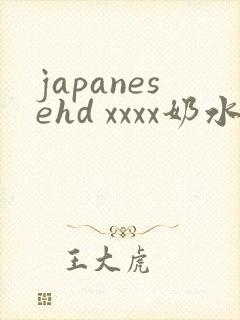 japanes
ehd xxxx奶水
王大虎